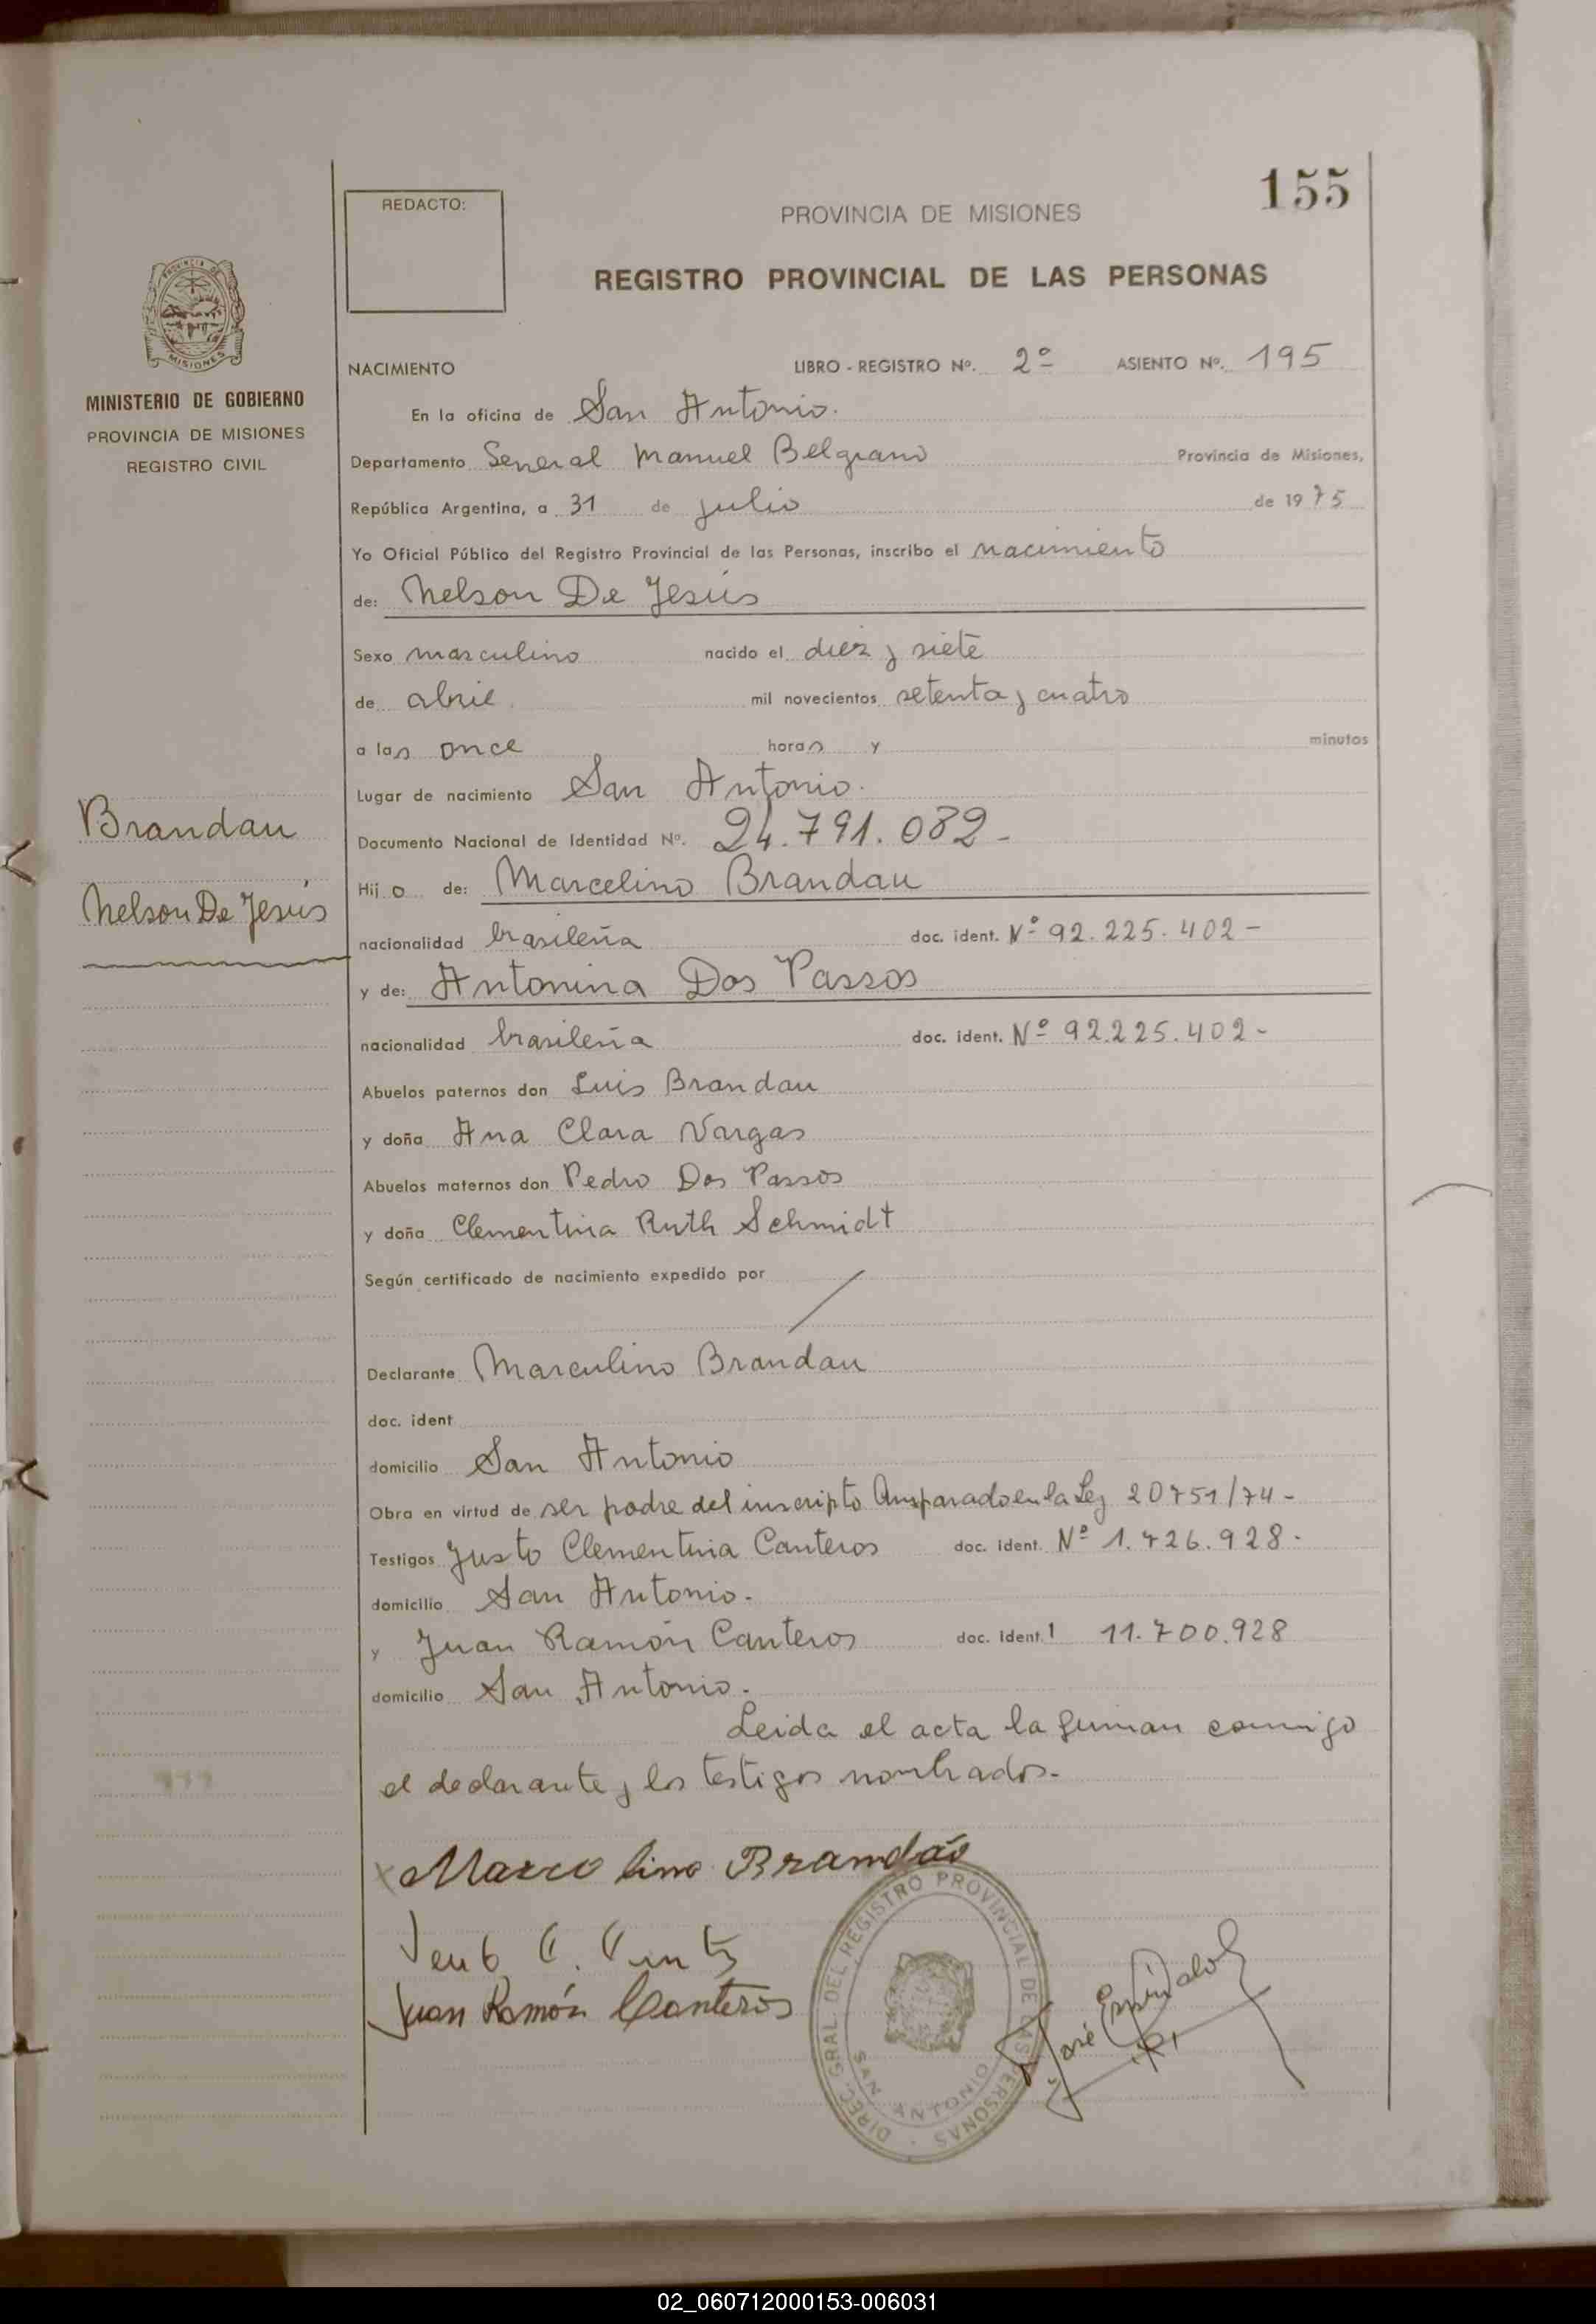 155
REDACTO:
PROVINCIA DE MISIONES
REGISTRO PROVINCIAL DE LAS PERSONAS
PROVINCIA DE
MISIONES
MINISTERIO DE GOBIERNO
PROVINCIA DE MISIONES
REGISTRO CIVIL
Brandau
Nelson De Jesús
NACIMIENTO LIBRO - REGISTRO Nº. 2º ASIENTO Nº. 195
En la oficina de San Antonio.
Departamento General Manuel Belgrano Provincia de Misiones,
República Argentina, a 31 de julio de 1975
Yo Oficial Público del Registro Provincial de las Personas, inscribo el nacimiento
de: Nelson De Jesús
Sexo masculino nacido el diez y siete
de abril mil novecientos setenta y cuatro
a las once horas y minutos
Lugar de nacimiento San Antonio.
Documento Nacional de Identidad Nº. 24.791.082-
Hijo de: Marcelino Brandau
nacionalidad brasileña doc. ident. Nº 92.225.402-
y de: Antonina Dos Passos
nacionalidad brasileña doc. ident. Nº 92.225.402-
Abuelos paternos don Luis Brandau
y doña Ana Clara Vargas
Abuelos maternos don Pedro Dos Passos
y doña Clementina Ruth Schmidt
Según certificado de nacimiento expedido por
Declarante Marculino Brandau
doc. ident
domicilio San Antonio
Obra en virtud de ser padre del inscripto Amparado en la Ley 20751/74-
Testigos Justo Clementina Canteros doc. ident. Nº 1.726.928.
domicilio San Antonio.
y Juan Ramón Canteros doc. ident. 11.700.928
domicilio San Antonio.
Leida el acta la firman conmigo
el declarante y los testigos nombrados.-
Marcolino Brandão
Juan Ramón Canteros
DIREC. GRAL. DEL REGISTRO PROVINCIAL DE LAS PERSONAS
SAN ANTONIO
José
02_060712000153-006031